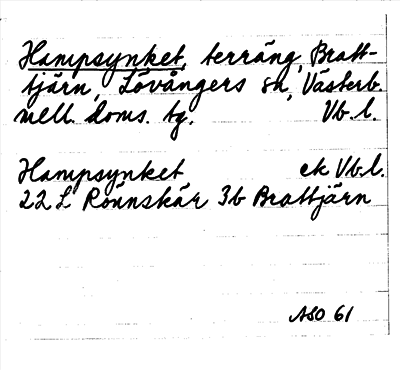 Hampsynket, terräng, Bratt-
tjärn, Lövångers sn, Västerb.
mell. doms. tg. Vb. l.
Hampsynket ek Vb. l.
22 L Rönnskär 3b Brattjärn
ASO 61